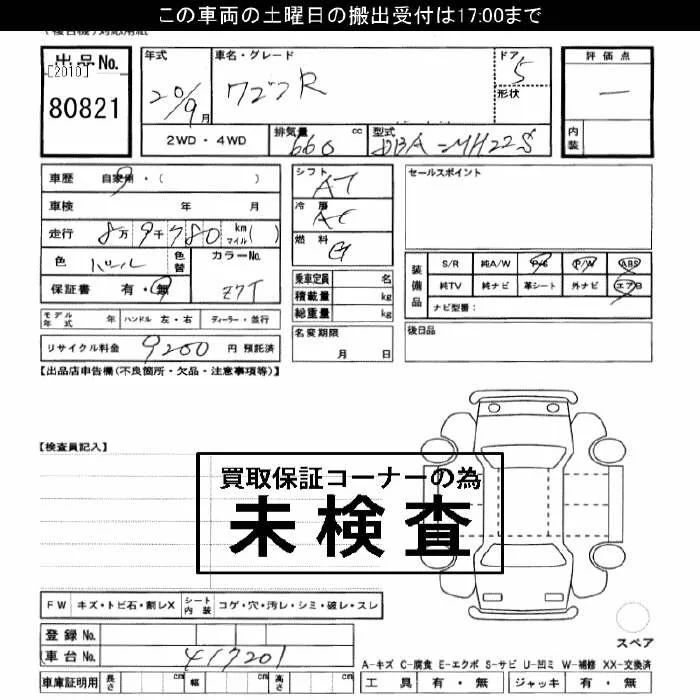 この車両の土曜日の搬出受付は17:00まで
出品No. 年式 車名・グレード ドア 評価点
[2010] 20/9月 ワゴンR 5 形状 ー
80821 内装
2WD・4WD 排気量 660 cc 型式 DBA-MH22S
車歴 自家用・( ) シフト AT セールスポイント
車検 年 月 冷房 AC
走行 8万9千780 km(マイル) 燃料 G
色 パール 色替 カラーNo. Z7T
装備品 S/R 純A/W P・S P/W ABS
保証書 有・無 乗車定員 名 純TV 純ナビ 革シート 外ナビ エアB
積載量 kg ナビ型番:
総重量 kg
モデル年式 年 ハンドル 左・右 ディーラー・並行 名変期限 月 日 後日品
リサイクル料金 9200 円 預託済
【出品店申告欄(不良箇所・欠品・注意事項等)】
【検査員記入】
買取保証コーナーの為
未検査
FW キズ・トビ石・割レX シート内装 コゲ・穴・汚レ・シミ・破レ・スレ
スペア
登録No.
車台No. 417201
A-キズ C-腐食 E-エクボ S-サビ U-凹ミ W-補修 XX-交換済
車庫証明用 長さ cm 幅 cm 高さ cm 工具 有・無 ジャッキ 有・無